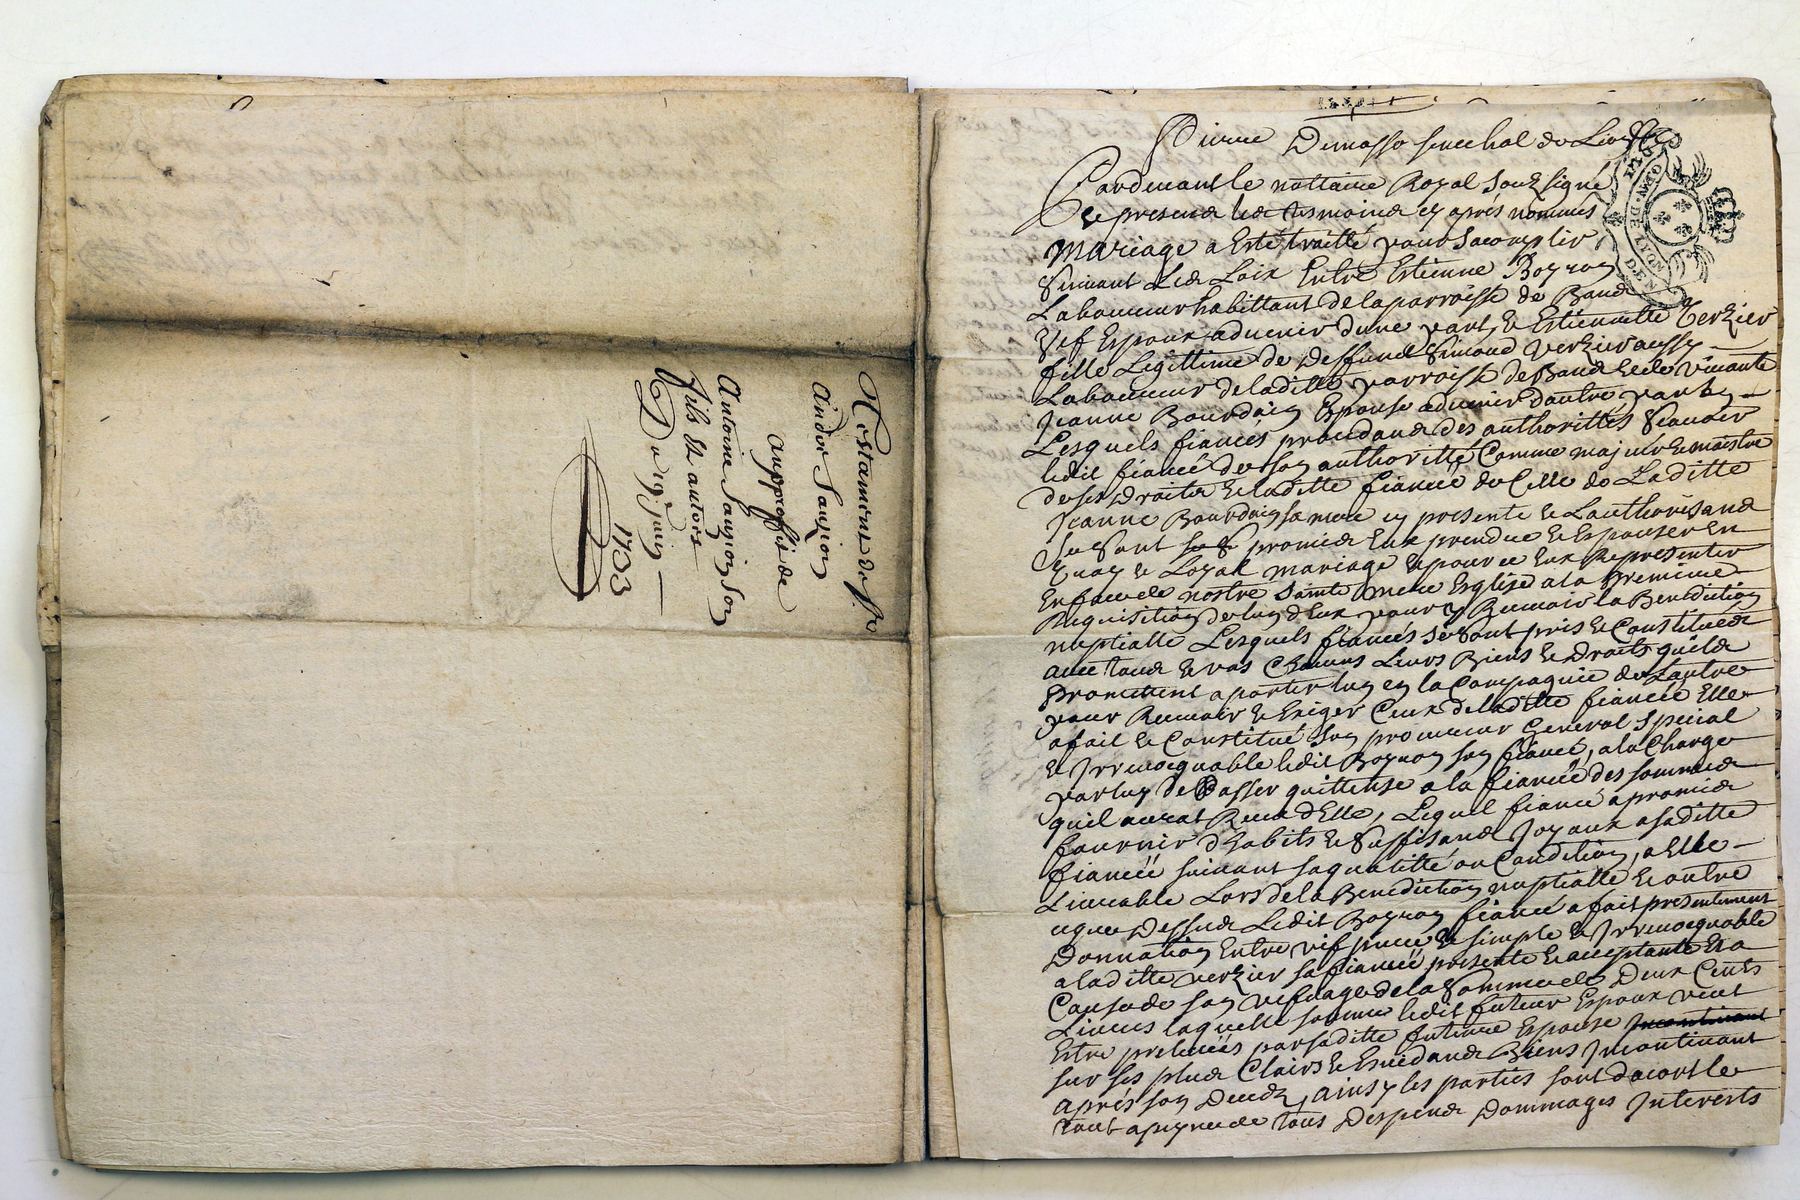 Testament de Sr
André Sauzion
au proffit de
Antoine Sauzion son
fils et autres
Du 19e juin
1703
GEN. DE LYON
Pierre Demasso senechal de Lion
Pardevant le nottaire Royal soubsigné
et presend led tesmoind cy aprés nommés
Mariage a Esté traitté pour sacomplir
Suivant Led Loix Entre Estienne Boyron
Laboureur habittant de la parroisse de Band
vef Espoux aduenir dune part, et Estiennette Verzier
fille Legittime de Deffunct Simond Verzier aussy
Laboureur de laditte parroisse de Band et de vivante
Jeanne Bourdon Espouse aduenir dautre part
Lesquels fiancés procedand des authorittés scauoir
ledit fiancé de son authoritté Comme majeur et maistre
de ses Droitd et laditte fiancée de Celle de Laditte
Jeanne Bourdon sa mere cy presente et Lauthorisand
se sont promid Eux prendre et Espouser En
vray et Loyal mariage et pour ce Eux Representer
En face de nostre Sainte mere Esglise a la premiere
Requisition de lun dEux pour y Receuoir la Benediction
nuptialle Lesquels fiancés se sont pris et Constitued
auec tous et vas Chacuns Leurs Biens et Droits quils
promettent aporter lun en la Compagnie de Lautre
pour Receuoir et Exiger Ceux de laditte fiancée Elle
a fait et Constitué son procureur General special
et Irreuoquable ledit Boyron son fiancé, a la Charge
par luy de Passer quittense a la fiancée des sommed
quil aurat Receud dElle, Lequel fiancé a promid
fournir dhabits et Suffisand Joyaux a saditte
fiancée suivant sa qualitté ou Condition, a Elle
Liurable Lors de la Benediction nuptialle et outre
ce que Dessud Ledit Boyron fiancé a fait presentement
Donnation Entre vif pure et simple et Irreuoquable
a laditte verzier sa fiancée presente et acceptante Et a
Cause de son vefuage de la Somme de Deux Cents
Liures laquelle somme ledit futeur Espoux veut
Estre preleuée par saditte futeure Espouse
sur ses plud Clairs et Euidand Biens Incontinant
aprés son Deced, ainsy les parties sont dacort le
tout a peyne de tous Despend Dommages Interests